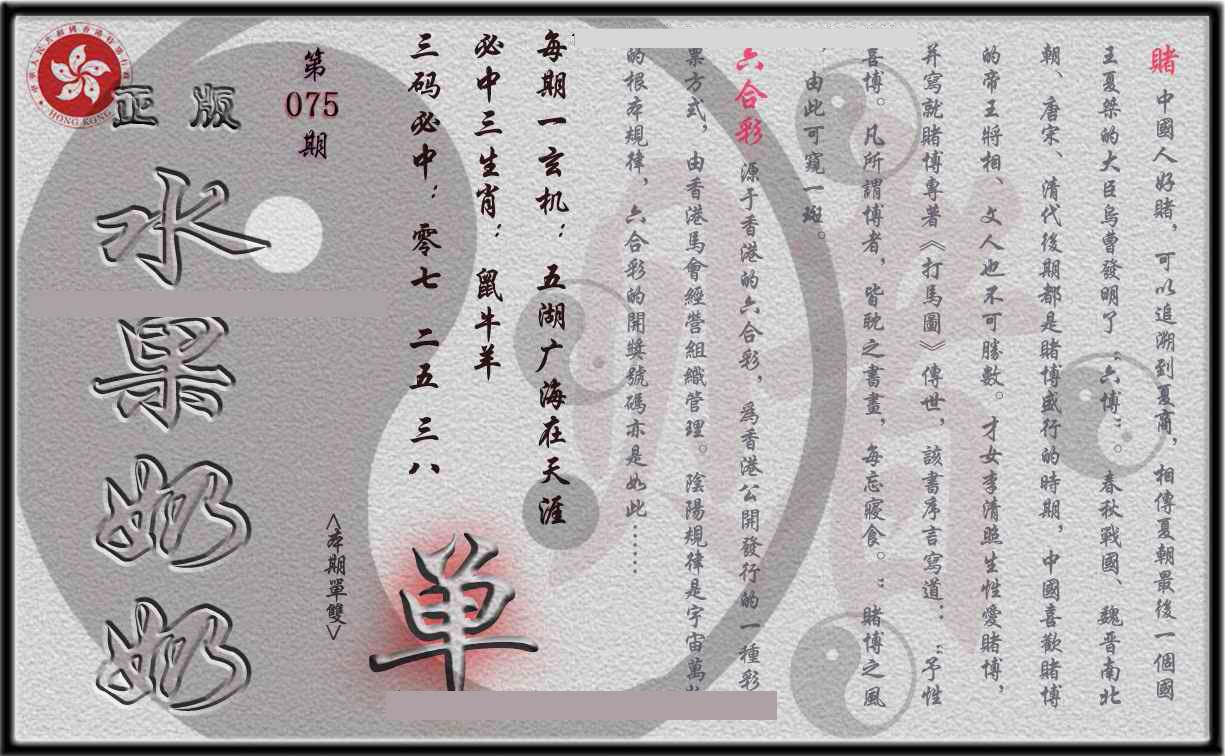 賭 中國人好賭，可以追溯到夏商，相傳夏朝最後一個國
王夏桀的大臣烏曹發明了“六博”。春秋戰國、魏晋南北
朝、唐宋、清代後期都是賭博盛行的時期，中國喜歡賭博
的帝王將相、文人也不可勝數。才女李清照生性愛賭博，
并寫就賭博專著《打馬圖》傳世，該書序言寫道：：“予性
喜博。凡所謂博者，皆耽之書晝，每忘寢食。”：賭博之風
，由此可窺一斑。
六合彩 源于香港的六合彩，爲香港公開發行的一種彩
票方式，由香港馬會經營組織管理。陰陽規律是宇宙萬
的根本規律，六合彩的開獎號碼亦是如此……
每期一玄机：五湖广海在天涯
必中三生肖：鼠牛羊
三码必中：零七 二五 三八
单
第
075
期
<本期單雙>
正版
水果奶奶
HONG KONG